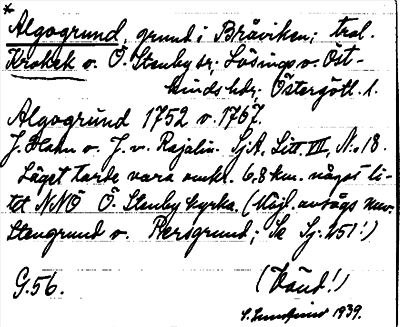 * Algogrund, grund i Bråviken; trol.
Krokek o. Ö. Stenby sr; Lösings o. Öst-
kinds hdr; Östergötl. l.
Algogrund 1752 o. 1767.
J. Hahn o. J. v. Rajalin. SjA, Litt. III, No 18.
Läget torde vara omkr. 6.8 km. något li-
tet NNÖ Ö. Stenby kyrka. (Möjl. avsågs nuv.
Stengrund o. Persgrund; Se Sj. 451!)
G. 56. (Vänd!)
1939.